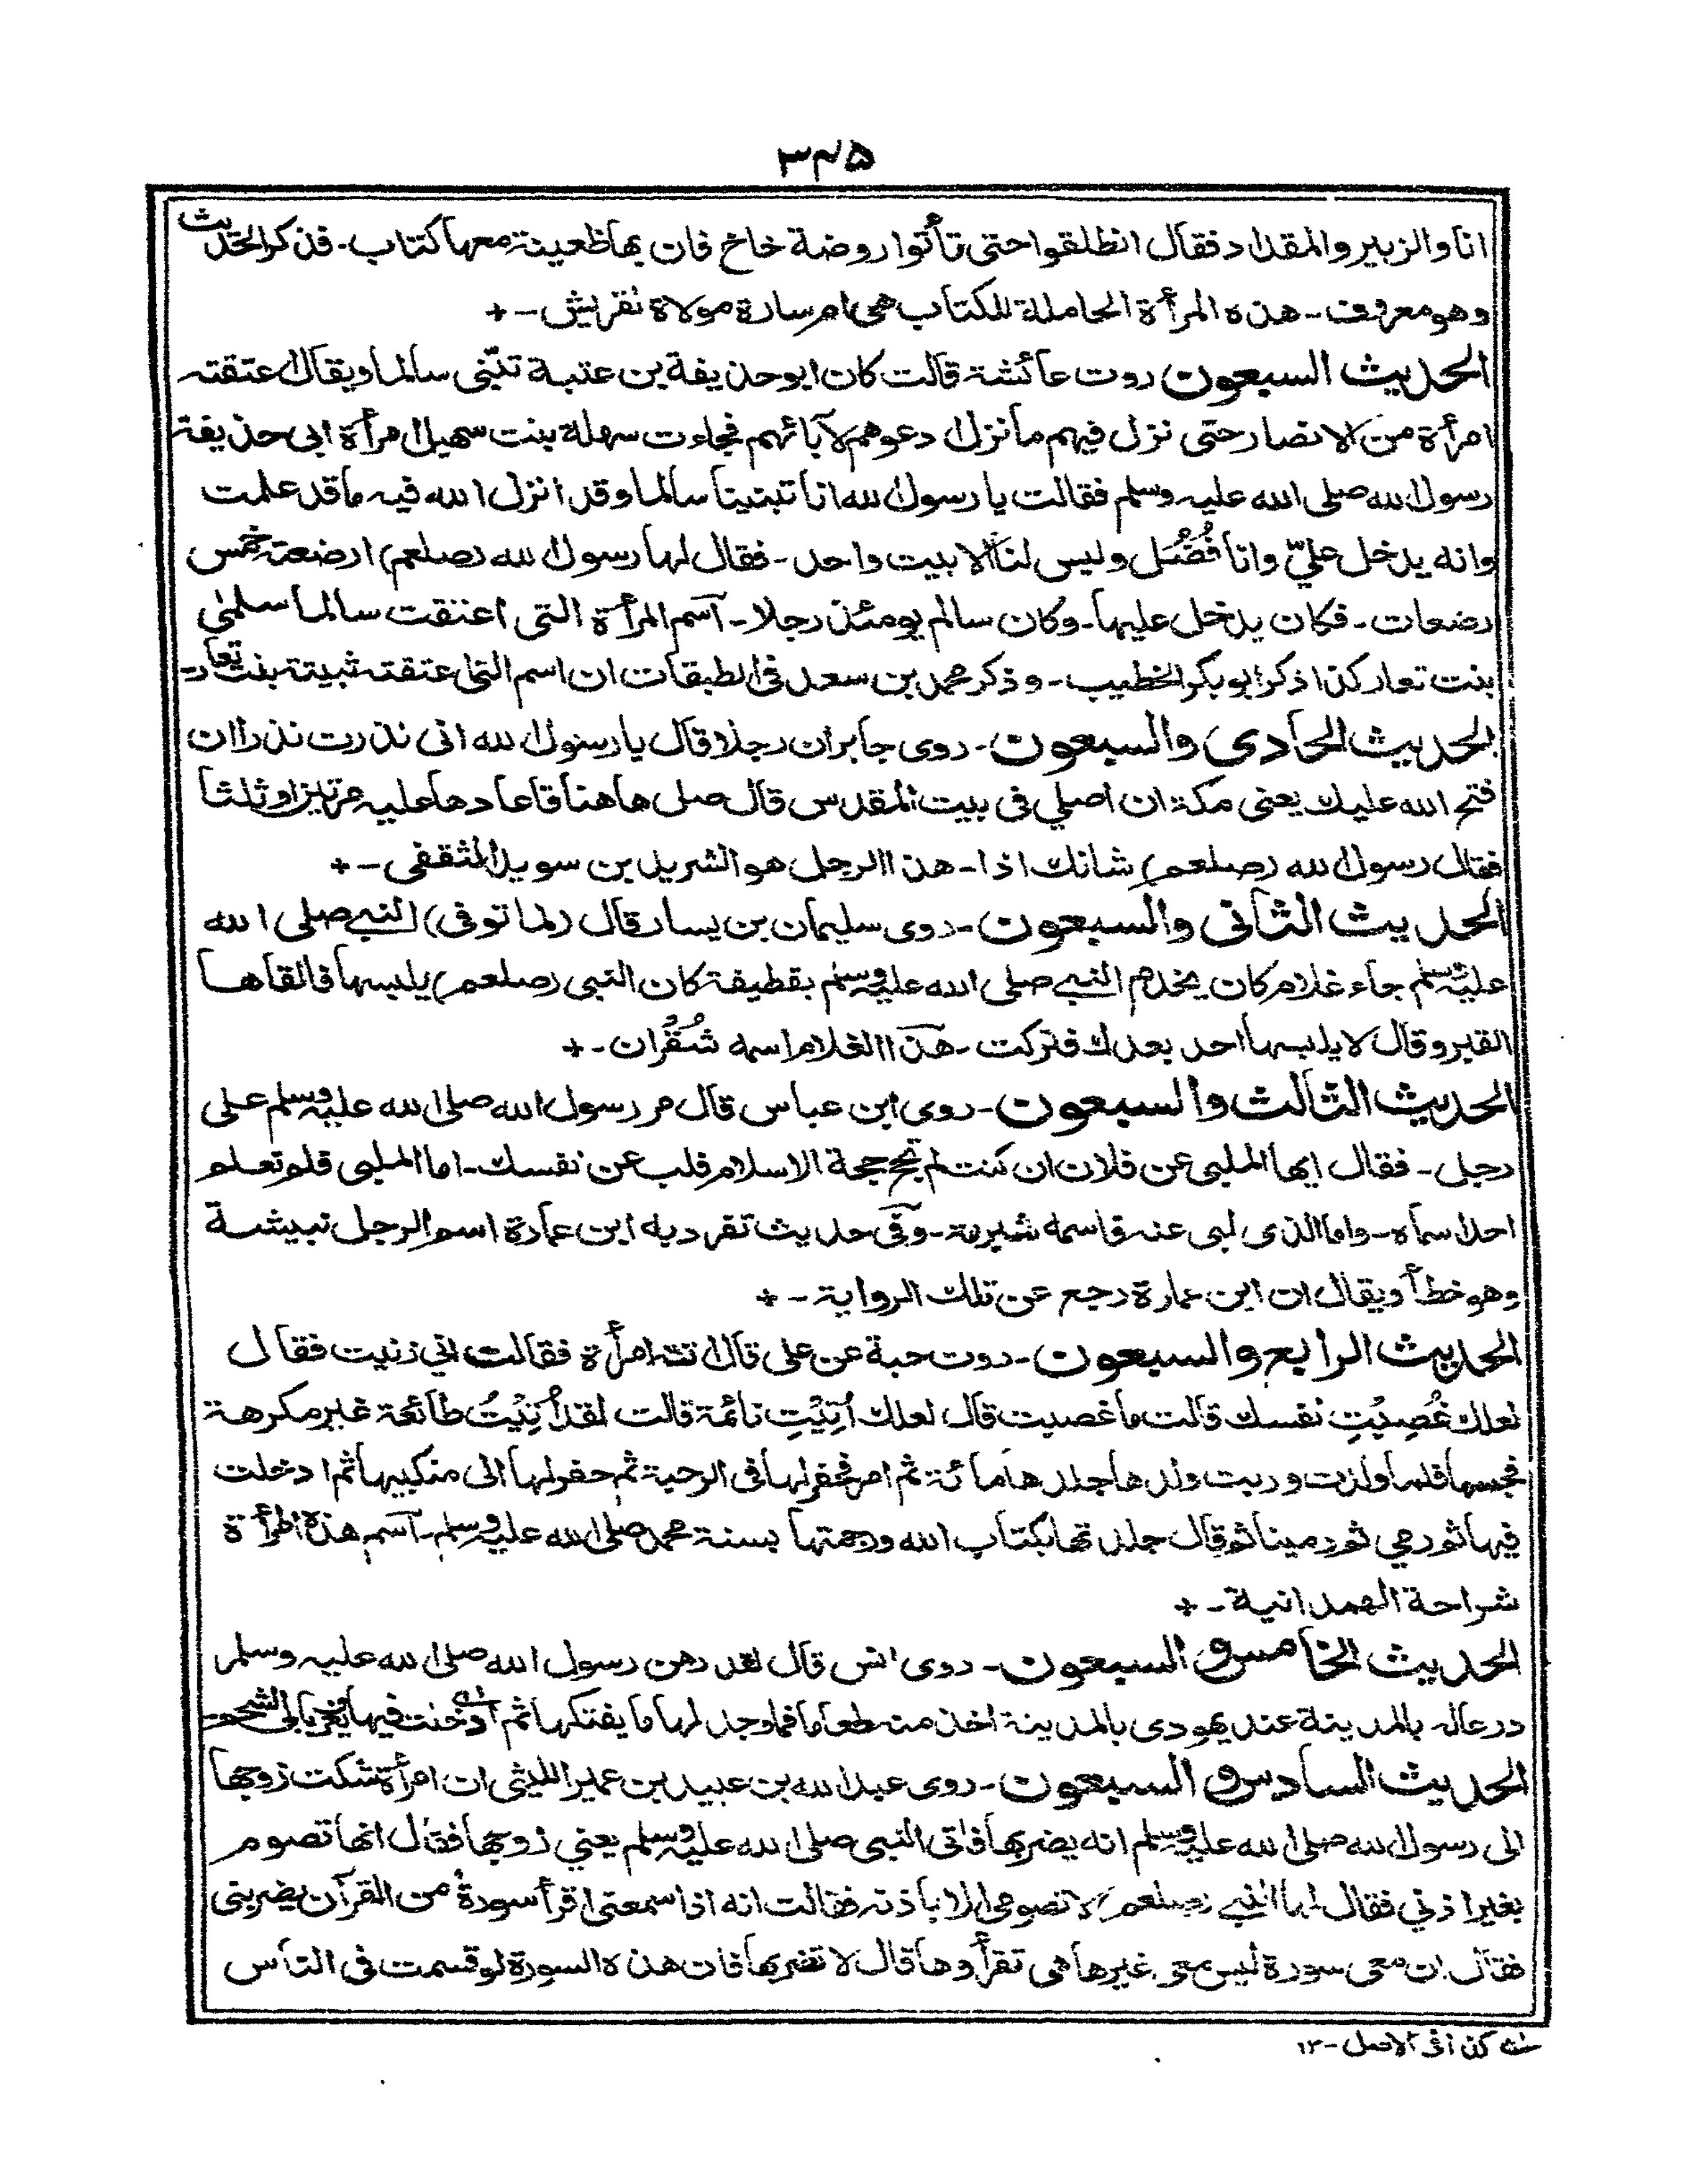 ۳۴۵
انا والزبير والمقداد فقال انطلقوا حتى تأتوا روضة خاخ فان بها ظعينة معها كتاب - فذكر الحديث
وهو معروف - هذه المرأة الحاملة للكتاب هى ام سارة مولاة لقريش - +
الحديث السبعون روت عائشة قالت كان ابو حذيفة بن عتبة تبنّى سالما ويقال اعتقته
امرأة من الانصار حتى نزل فيهم ما نزل ادعوهم لآبائهم فجاءت سهلة بنت سهيل امرأة ابى حذيفة
رسول الله صلى الله عليه وسلم فقالت يا رسول الله انا تبنينا سالما وقد انزل الله فيه ما قد علمت
وانه يدخل عليّ وانا فُضُل وليس لنا الا بيت واحد - فقال لها رسول الله (صلعم) ارضعة خمس
رضعات - فكان يدخل عليها - وكان سالم يومئذ رجلا - آسم المرأة التى اعتقت سالما سلمىٰ
بنت تعار كذا ذكر ابو بكر الخطيب - وذكر محمد بن سعد فى الطبقات ان اسم التى اعتقته ثبيتة بنت تعار -
الحديث الحادى والسبعون - روى جابر ان رجلا قال يا رسول الله انى نذرت نذرا ان
فتح الله عليك يعنى مكة ان اصلي فى بيت المقدس قال صل هاهنا فاعادها عليه مرتين او ثلثا
فقال رسول الله (صلعم) شانك اذا - هذا الرجل هو الشريد بن سويد الثقفى - +
الحديث الثانى والسبعون - روى سليمان بن يسار قال (لما توفى) النبي صلى الله
عليه وسلم جاء غلام كان يخدم النبي صلى الله عليه وسلم بقطيفة كان النبى (صلعم) يلبسها فالقاها
القبر وقال لا يلبسها احد بعدك فتركت - هذا الغلام اسمه شُقْران - +
الحديث الثالث والسبعون - روى ابن عباس قال مر رسول الله صلى الله عليه وسلم على
رجل - فقال ايها الملبى عن فلان ان كنت لم تحج حجة الاسلام فلب عن نفسك - اما الملبى فلم تعلم
احدا سماه - واما الذى لبى عنه فاسمه شبرمة - وفى حديث تفرد به ابن عمارة اسم الرجل نبيشة
وهو خطأ ويقال ان ابن عمارة رجع عن تلك الرواية - +
الحديث الرابع والسبعون - روت حبة عن على قال اتته امرأة فقالت اني زنيت فقال
لعلك غُصِبْتِ نفسك قالت ما غصبت قال لعلك اُتِيْتِ نائمة قالت لقد اُتِيْتُ طائعة غير مكرهة
فحبسها فلما ولدت وربت ولدها جلدها مائة ثم امر فحفر لها فى الرحبة ثم حفر لها الى منكبيها ثم ادخلت
فيها ثم رمي ثم رمينا ثم قال جلدتها بكتاب الله ورجمتها بسنة محمد صلى الله عليه وسلم - آسم هذه المرأة
شراحة الهمدانية - +
الحديث الخامس و السبعون - روى انس قال لقد رهن رسول الله صلى الله عليه وسلم
درعا له بالمدينة عند يهودى بالمدينة اخذ منه طعاما فما وجد لها ما يفتكها ثم
الحديث السادس و السبعون - روى عبد الله بن عبيد بن عمير الليثى ان امرأة شكت زوجها
الى رسول الله صلى الله عليه وسلم انه يضربها فاتى النبى صلى الله عليه وسلم يعني زوجها فقال انها تصوم
بغير اذني فقال لها النبي (صلعم) لا تصومى الا باذنه فقالت انه اذا سمعتى اقرأ سورةً من القرآن يضربنى
فقال ان معى سورة ليس معى غيرها هى تقرأوها قال لا تضربها فان هذه السورة لو قسمت فى الناس
كذا فى الاصل - ۱۲